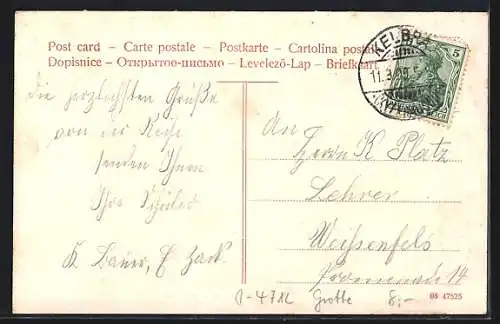 Post card – Carte postale – Postkarte – Cartolina postale
Dopisnice – Открытое-письмо – Levelező-Lap – Briefkaart
KELBRA
11.3.09
5
REICH
die herzlichsten Grüße
von der Reise
senden Ihnen
Ihre Schüler
K. Bauer, E. Zack.
An
Herrn K Platz
Lehrer
Weißenfels
Promenade 14
Grotte 8,-
08 47525